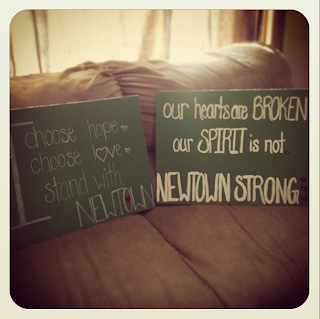 I choose hope
choose love
stand with
NEWTOWN
our hearts are BROKEN
our SPIRIT is not
NEWTOWN STRONG